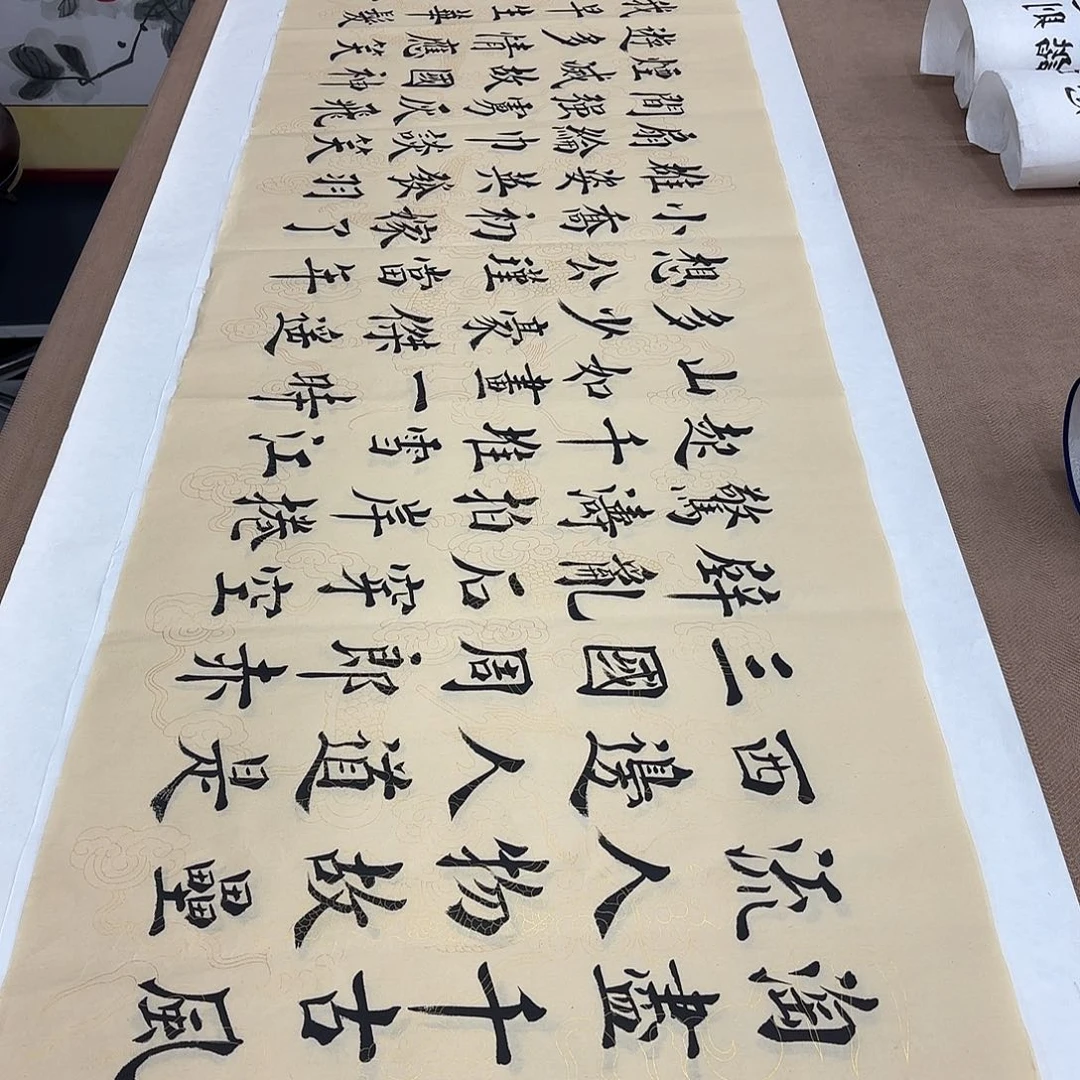 淘盡千古風
流人物故壘
西邊人道是
三國周郎赤
壁亂石穿空
驚濤拍岸捲
起千堆雪江
山如畫一時
多少豪傑遥
想公瑾當年
小喬初嫁了
雄姿英發羽
扇綸巾談笑
間强虜灰飛
煙滅故國神
遊多情應笑
我早生華髮